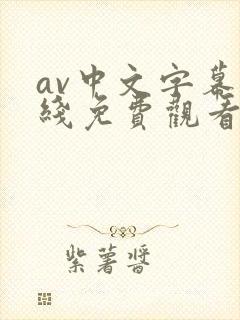 av中文字幕
綫免費觀看
紫薯醬